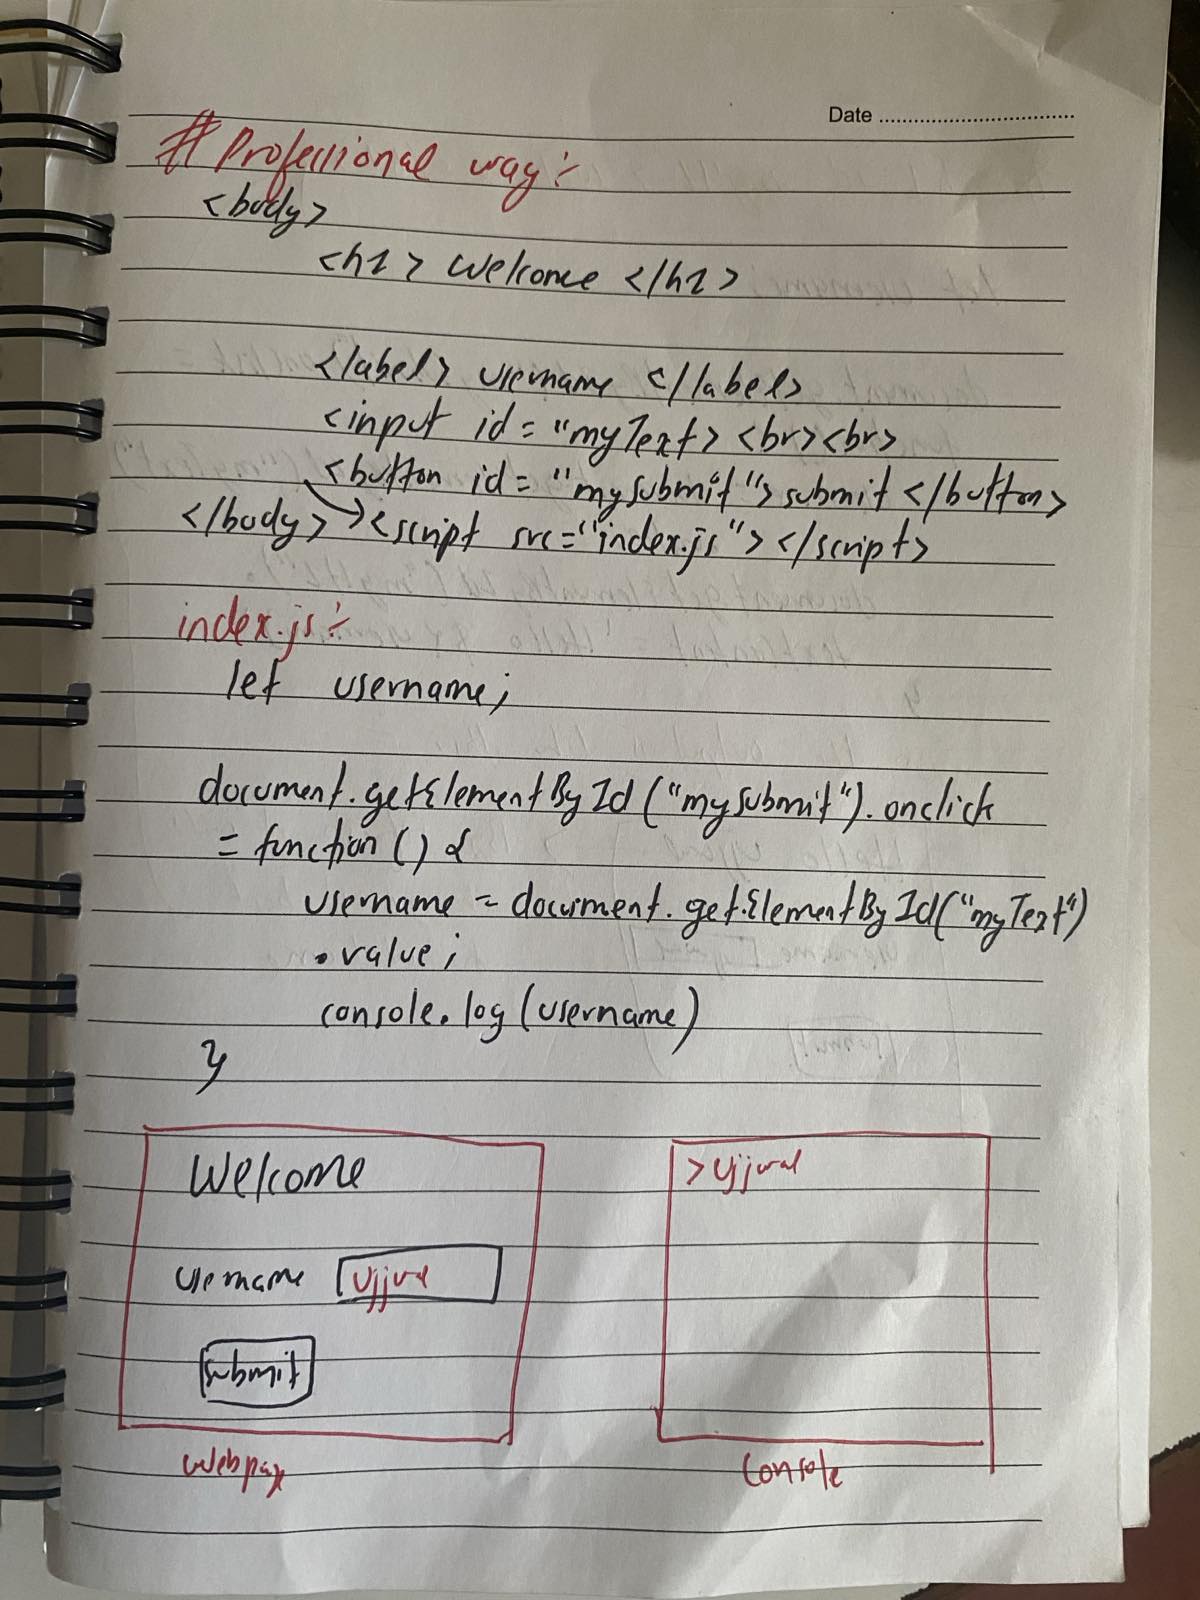 Date
# Professional way:-
<body>
<h1> Welcome </h1>
</label> username </label>
<input id = "myText> <br><br>
<button id = "mysubmit"> submit </button>
</body> → <script src="index.js"></script>
index.js:-
let username;
document.getElementById("mysubmit").onclick
= function () {
username = document.getElementById("myText")
.value;
console.log(username)
}
Welcome
username Ujjwal
submit
>Ujjwal
webpage
console